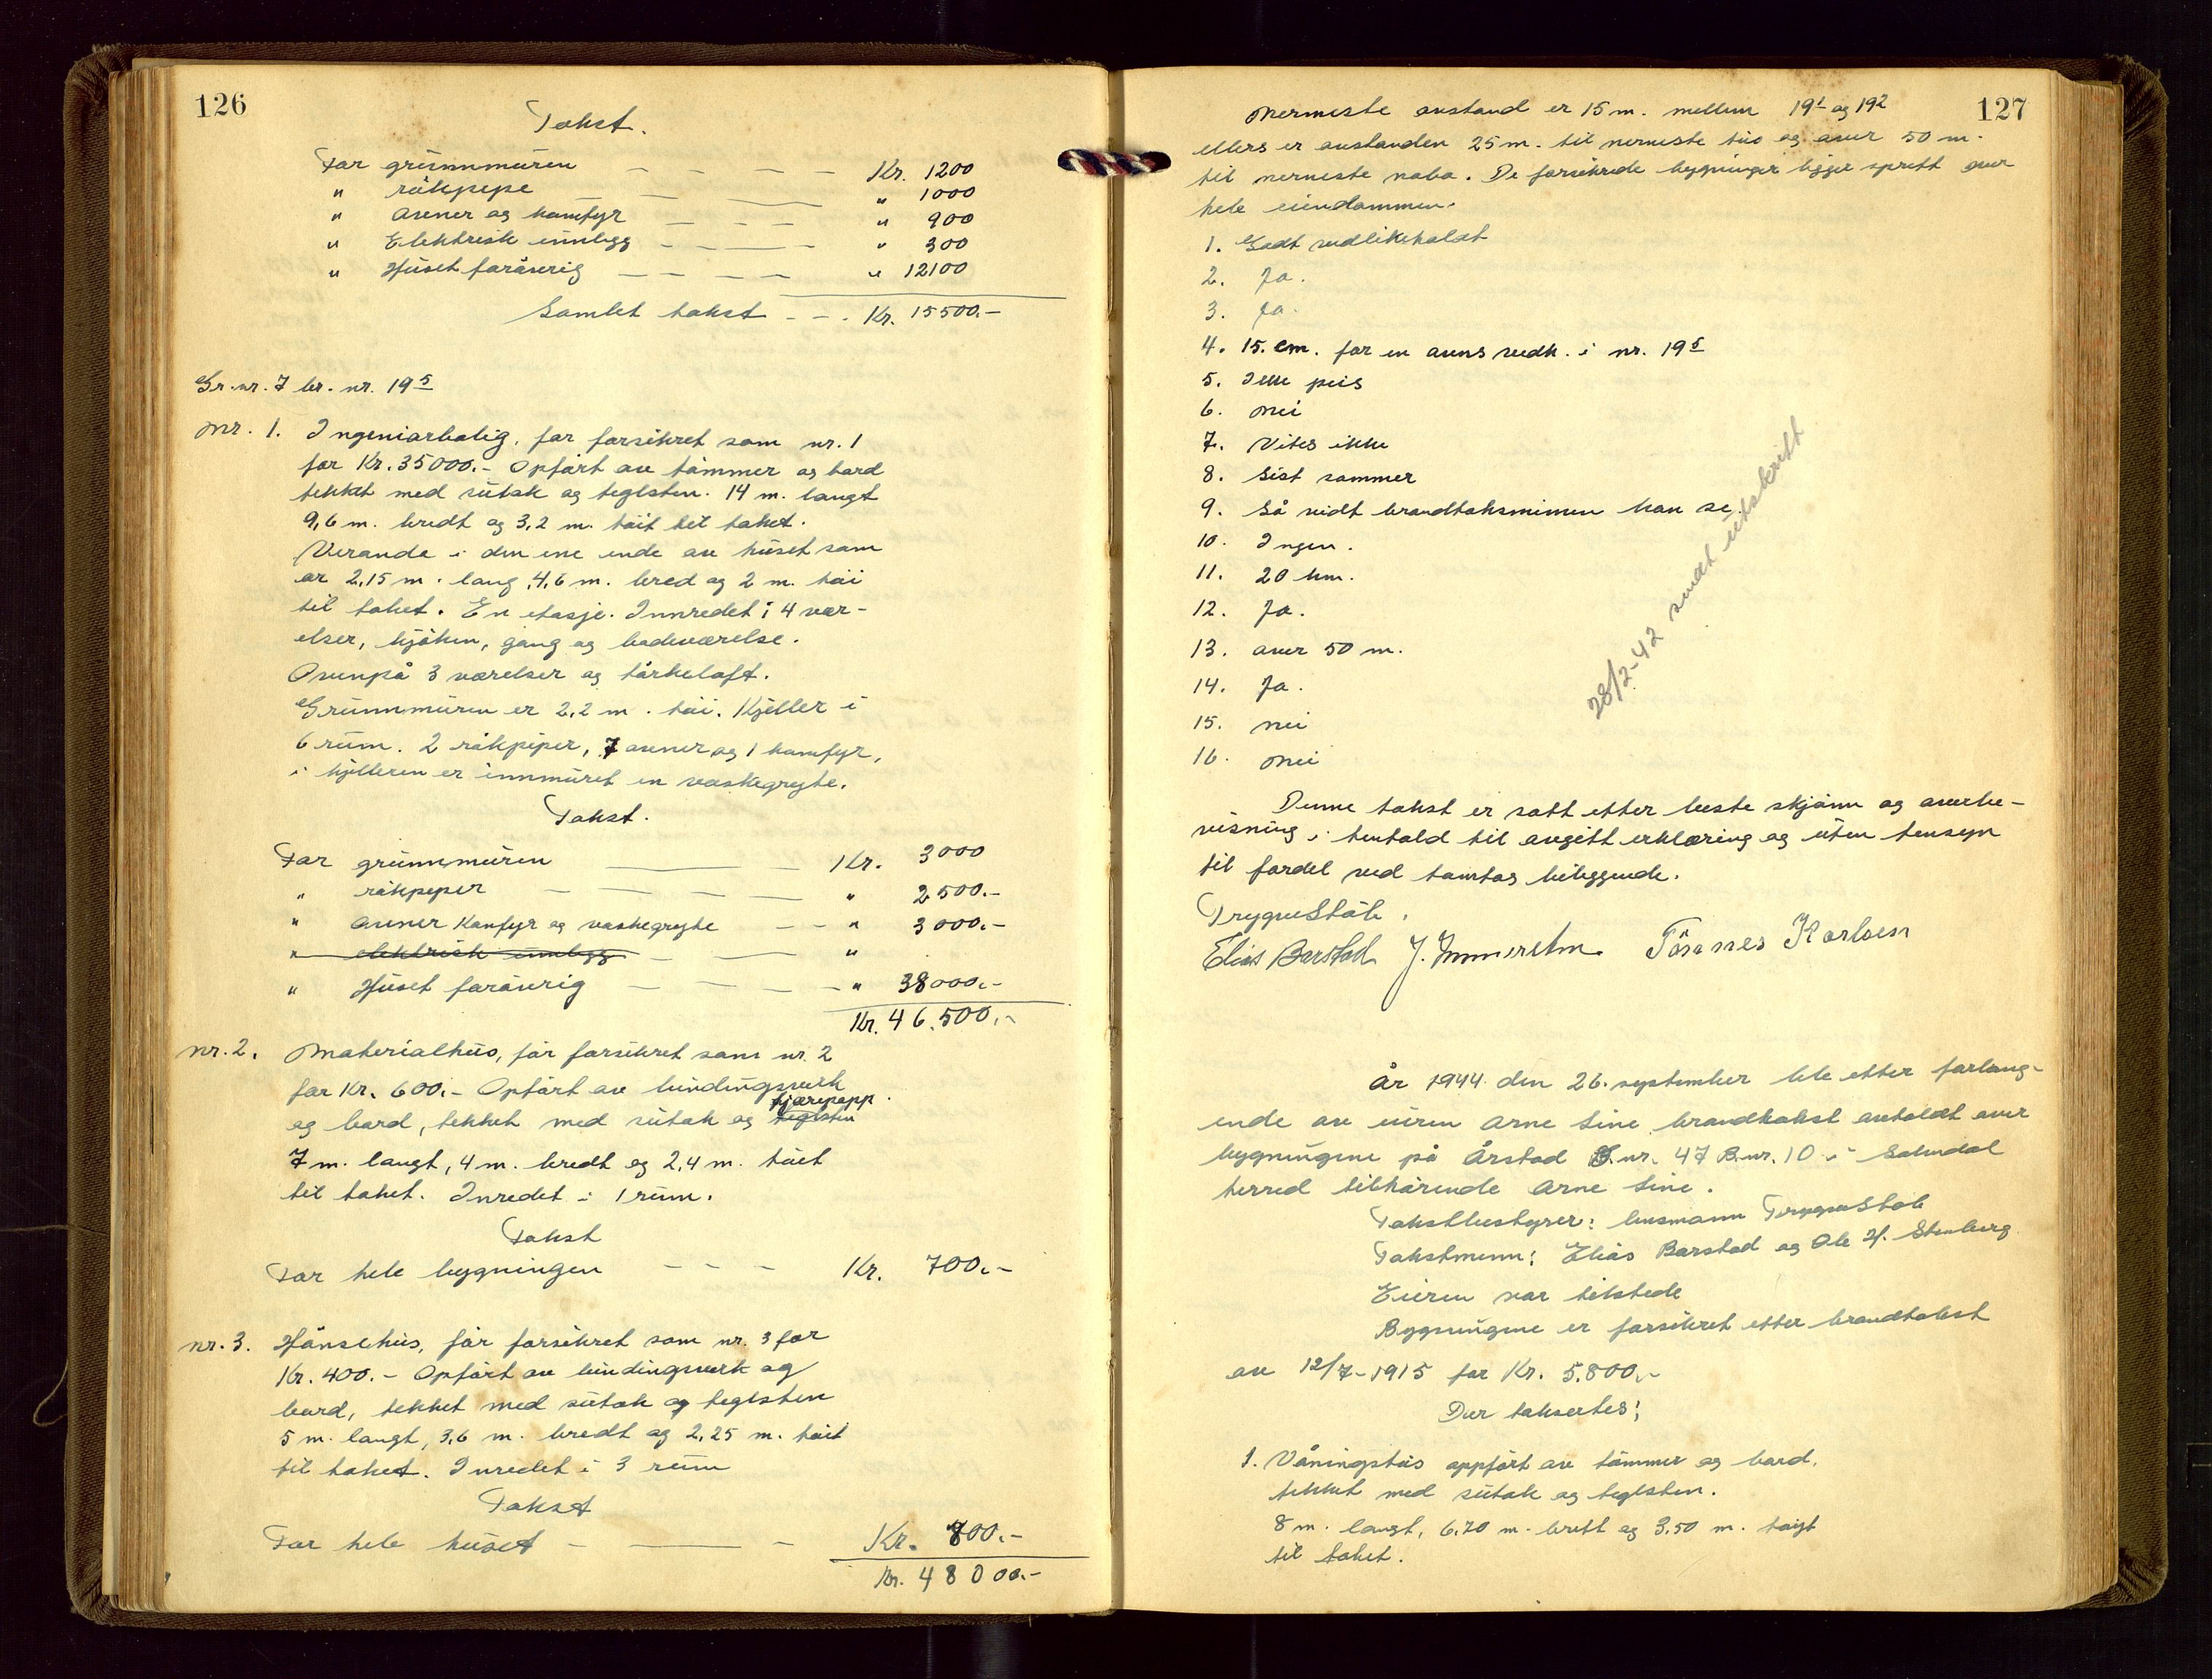 126
Takst.
For grunnmuren Kr. 1200
" rökpipe " 1000
" ovner og komfyr " 900
" Elektrisk innlegg " 300
" Huset foröverig " 12100
Samlet takst - - - Kr. 15500.-
Gr. nr. 7 br. nr. 19⁵
Nr. 1. Ingeniørbolig, før forsikret som nr. 1
for Kr. 35000.- Opført av tömmer og bord
tekket med sutak og teglsten. 14 m. langt
9,6 m. bredt og 3,2 m. höit til taket.
Veranda i den ene ende av huset som
er 2,15 m. lang, 4,6 m. bred og 2 m. höi
til taket. En etasje. Innredet i 4 vær-
elser, kjöken, gang og badeværelse.
Ovenpå 3 værelser og törkeloft.
Grunnmuren er 2,2 m. höi. Kjeller i
6 rum. 2 rökpiper, 7 ovner og 1 komfyr,
i kjelleren er innmuret en vaskegryte.
Takst.
For grunnmuren Kr. 3000
" rökpiper " 2500.-
" ovner Komfyr og vaskegryte " 3000.-
" elektrisk innlegg "
" Huset foröverig " 38000.-
Kr. 46.500.-
nr. 2. Materialhus, för forsikret som nr. 2
for Kr. 600.- Opfört av bindingsverk
og bord, tekket med sutak og teglsten tjærepapp.
7 m. langt, 4 m. bredt og 2,4 m. höit
til taket. Inredet i 1 rum.
Takst
For hele bygningen - - - Kr. 700.-
nr. 3. Hönsehus, för forsikret som nr. 3 for
Kr. 400.- Opfört av bindingsverk og
bord, tekket med sutak og teglsten
5 m. langt, 3,6 m. bredt og 2,25 m. höit
til taket. Inredet i 3 rum
Takst
For hele huset Kr. 800.-
Kr. 48000.-
127
Nermeste avstand er 15 m. mellem 19¹ og 19²
ellers er avstanden 25 m. til nermeste hus og over 50 m.
til nermeste nabo. De forsikrede bygninger ligger spredt over
hele eiendommen.
1. Godt vedlikeholdt
2. Ja.
3. Ja.
4. 15. cm. for en ovns vedk. i nr. 19⁵
5. Ikke peis
6. Nei
7. Vites ikke
8. Sist sommer
9. Så vidt brandtakstmennen kan se.
10. Ingen.
11. 20 km.
12. Ja.
13. over 50 m.
14. Ja.
15. nei
16. Nei
28/2-42 sendt utskrift
Denne takst er satt etter beste skjönn og overbe-
visning i henhold til avgitt erklæring og uten hensyn
til fordel ved tomtas beliggende.
Trygve Stöle.
Elias Barstad J. Immerstein Tönnes Karlsen
År 1944 den 26. september ble etter forlang-
ende av eieren Arne Sine brandtakst avholdt over
bygningene på Årstad G.nr. 47 B.nr. 10 i Sokndal
herred tilhörende Arne Sine.
Takstbestyrer: lensmann Trygve Stöle
Takstmenn: Elias Barstad og Ole H. Stenberg
Eieren var tilstede
Bygningene er forsikret etter brandtakst
av 12/7-1915 for Kr. 5.800.-
Der taksertes:
1. Våningshus oppfört av tömmer og bord,
tekket med sutak og teglsten.
8 m. langt, 6,70 m. brett og 3,50 m. höigt
til taket.